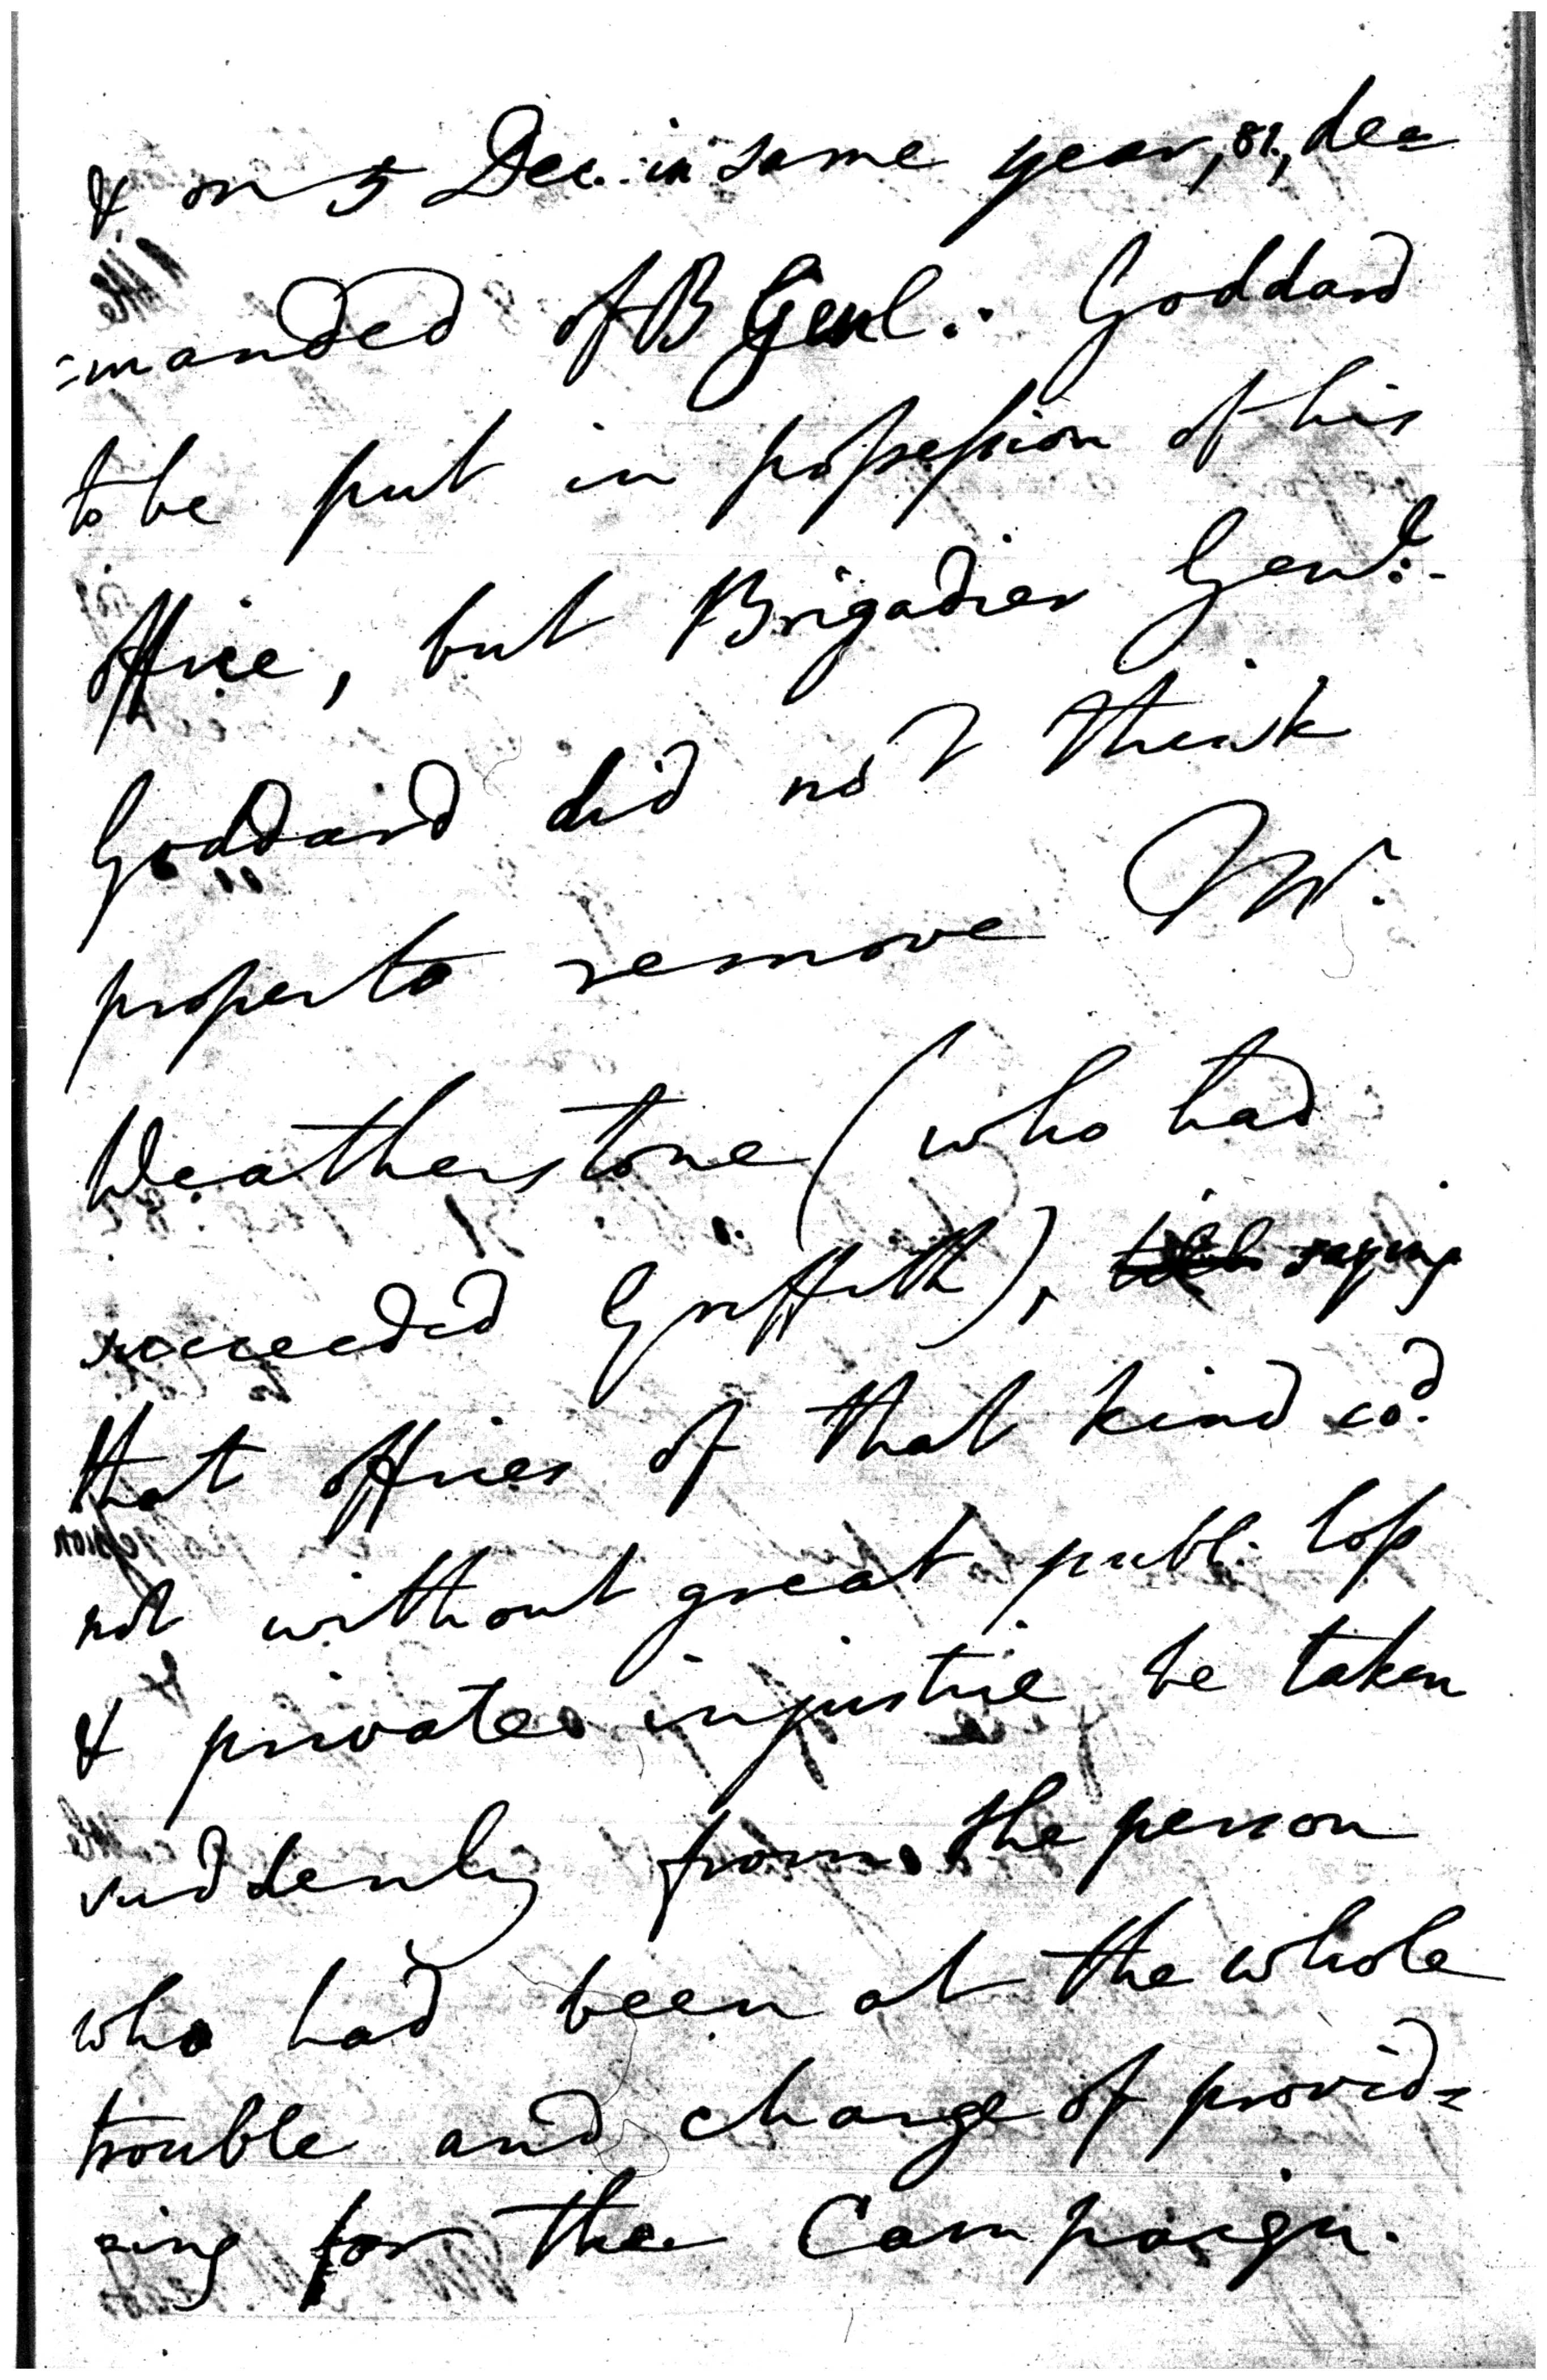 & on 5 Dec. in same year, 81, de=
=manded of B Genl. Goddard
to be put in possession of his
office, but Brigadier Genl.
Goddard did not think
proper to remove Mr.
Weatherstone (who had
succeeded Griffith), saying
that offices of that kind cod.
not without great publ. loss
& private injustice be taken
suddenly from the person
who had been at the whole
trouble and charge of provid=
=ing for the Campaign.